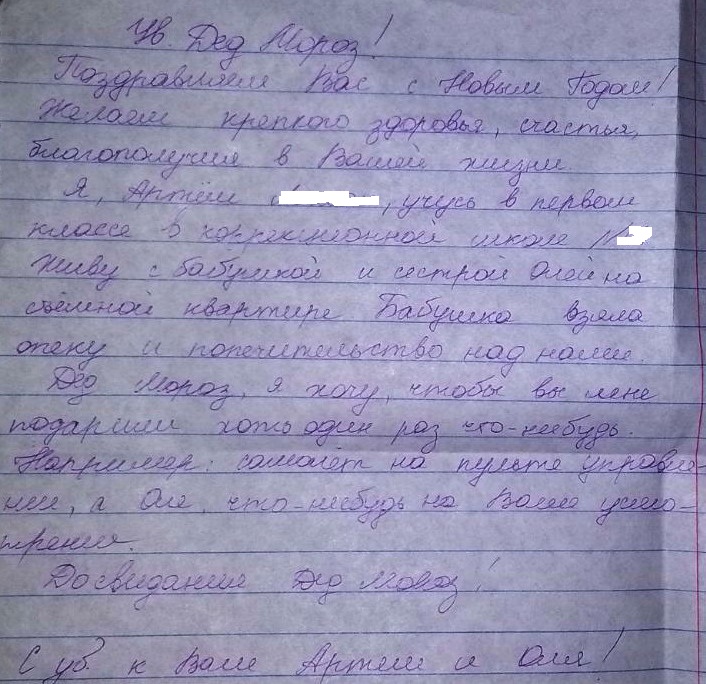 Ув. Дед Мороз!
Поздравляем Вас с Новым Годом!
Желаем крепкого здоровья, счастья,
благополучия в Вашей жизни.
Я, Артём , учусь в первом
классе в коррекционной школе №
Живу с бабушкой и сестрой Олей на
съёмной квартире Бабушка взяла
опеку и попечительство над нами.
Дед Мороз, я хочу, чтобы вы мне
подарили хоть один раз что-нибудь.
Например: самолёт на пульте управле-
нии, а Оле что-нибудь на Ваше усмо-
трение.
Досвидания Дед Мороз!
С ув. к Вам Артём и Оля!